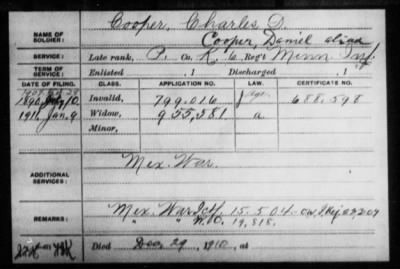 Cooper, Charles D.
NAME OF SOLDIER: Cooper, Daniel alias
SERVICE: Late rank, P. Co. K, 6, Reg't Minn Inf.
TERM OF SERVICE: Enlisted , 1 Discharged , 1
DATE OF FILING. CLASS. APPLICATION NO. LAW. CERTIFICATE NO.
1890 July 10. Invalid, 799,016 688,598
1911 Jan. 9 Widow, 955,581 a.
Minor,
Mex. War.
ADDITIONAL SERVICES:
REMARKS: Mex. War 15,504
" " 19,818.
Died Dec. 29, 1910, at